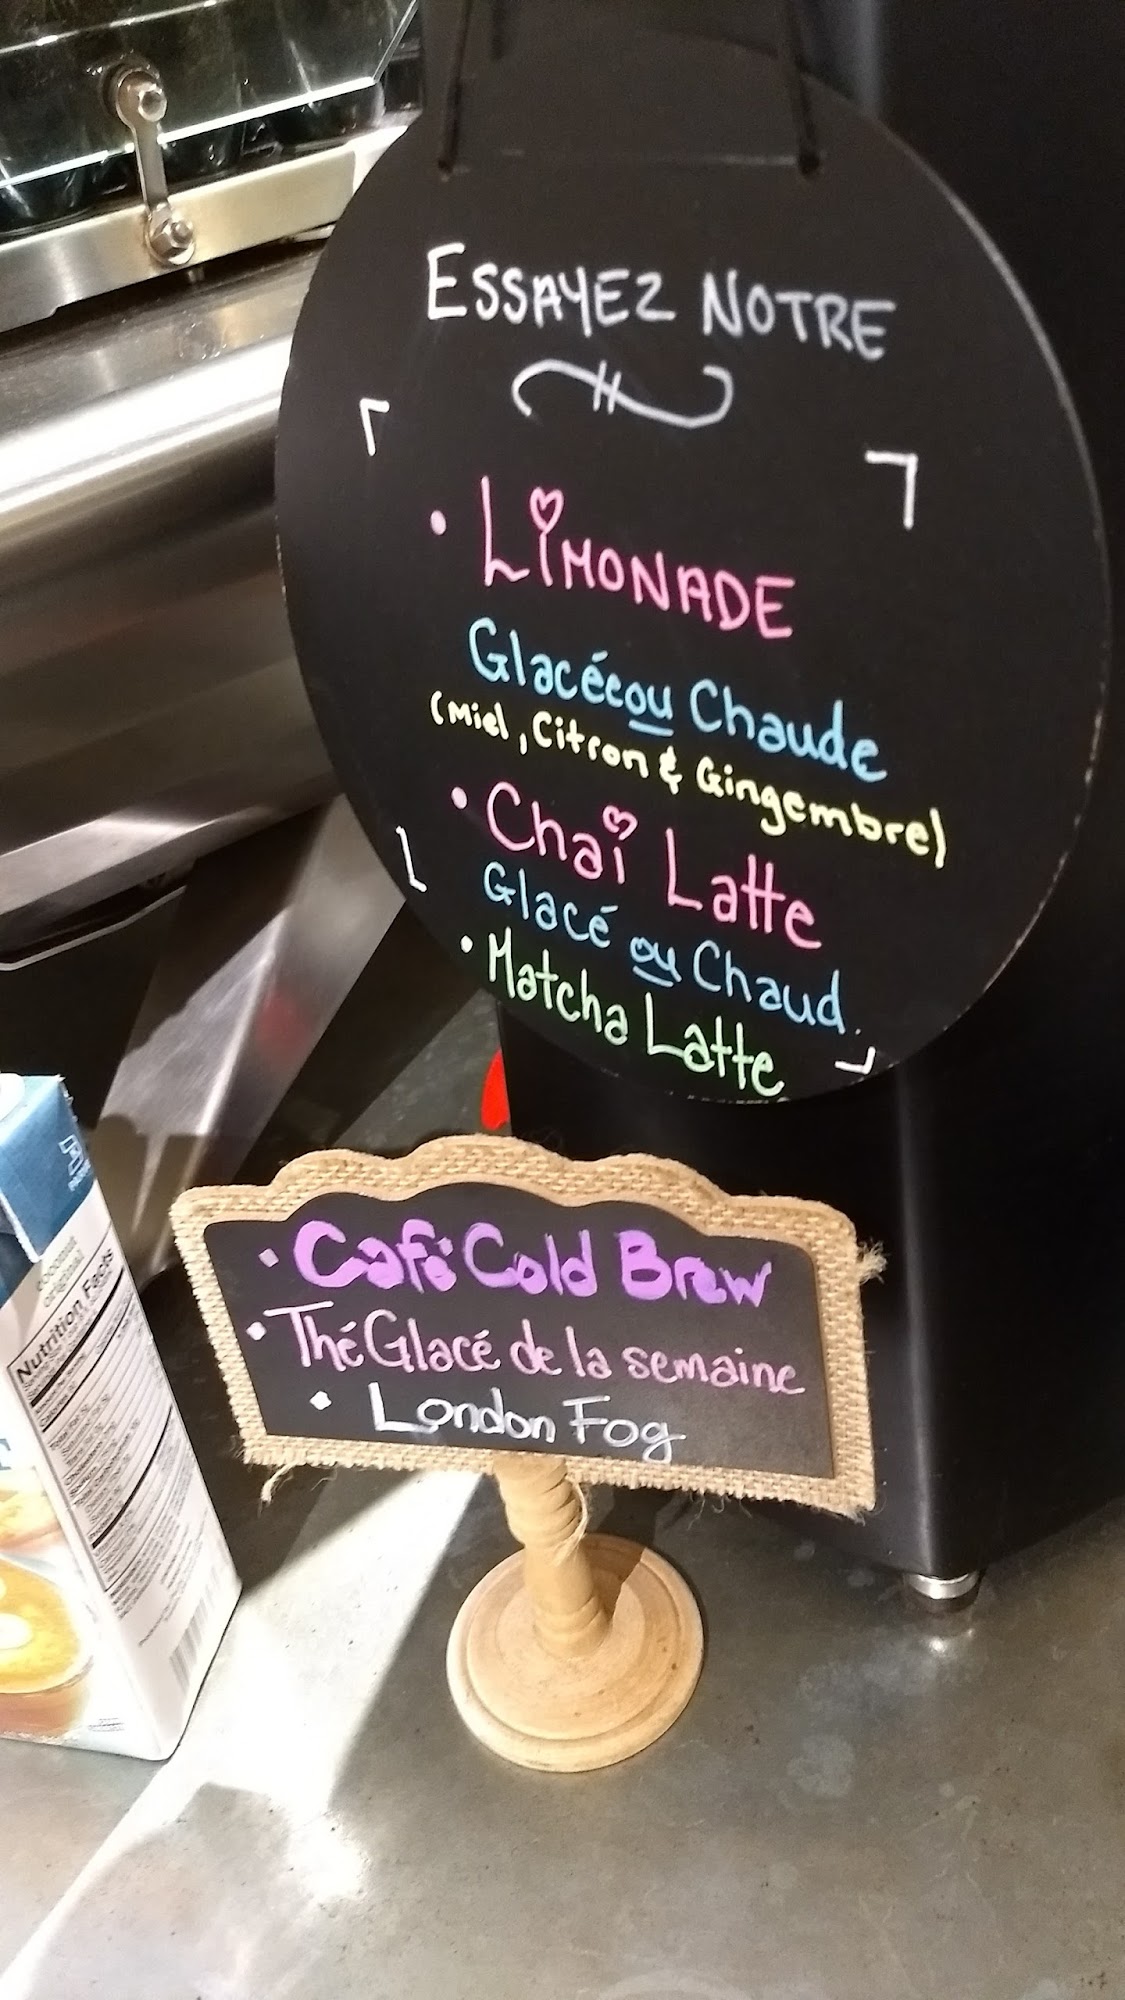 ESSAYEZ NOTRE
• LIMONADE
Glacée ou Chaude
(Miel, Citron & Gingembre)
• Chai Latte
Glacé ou Chaud.
• Matcha Latte
• Café Cold Brew
• Thé Glacé de la semaine
• London Fog
Nutrition Facts